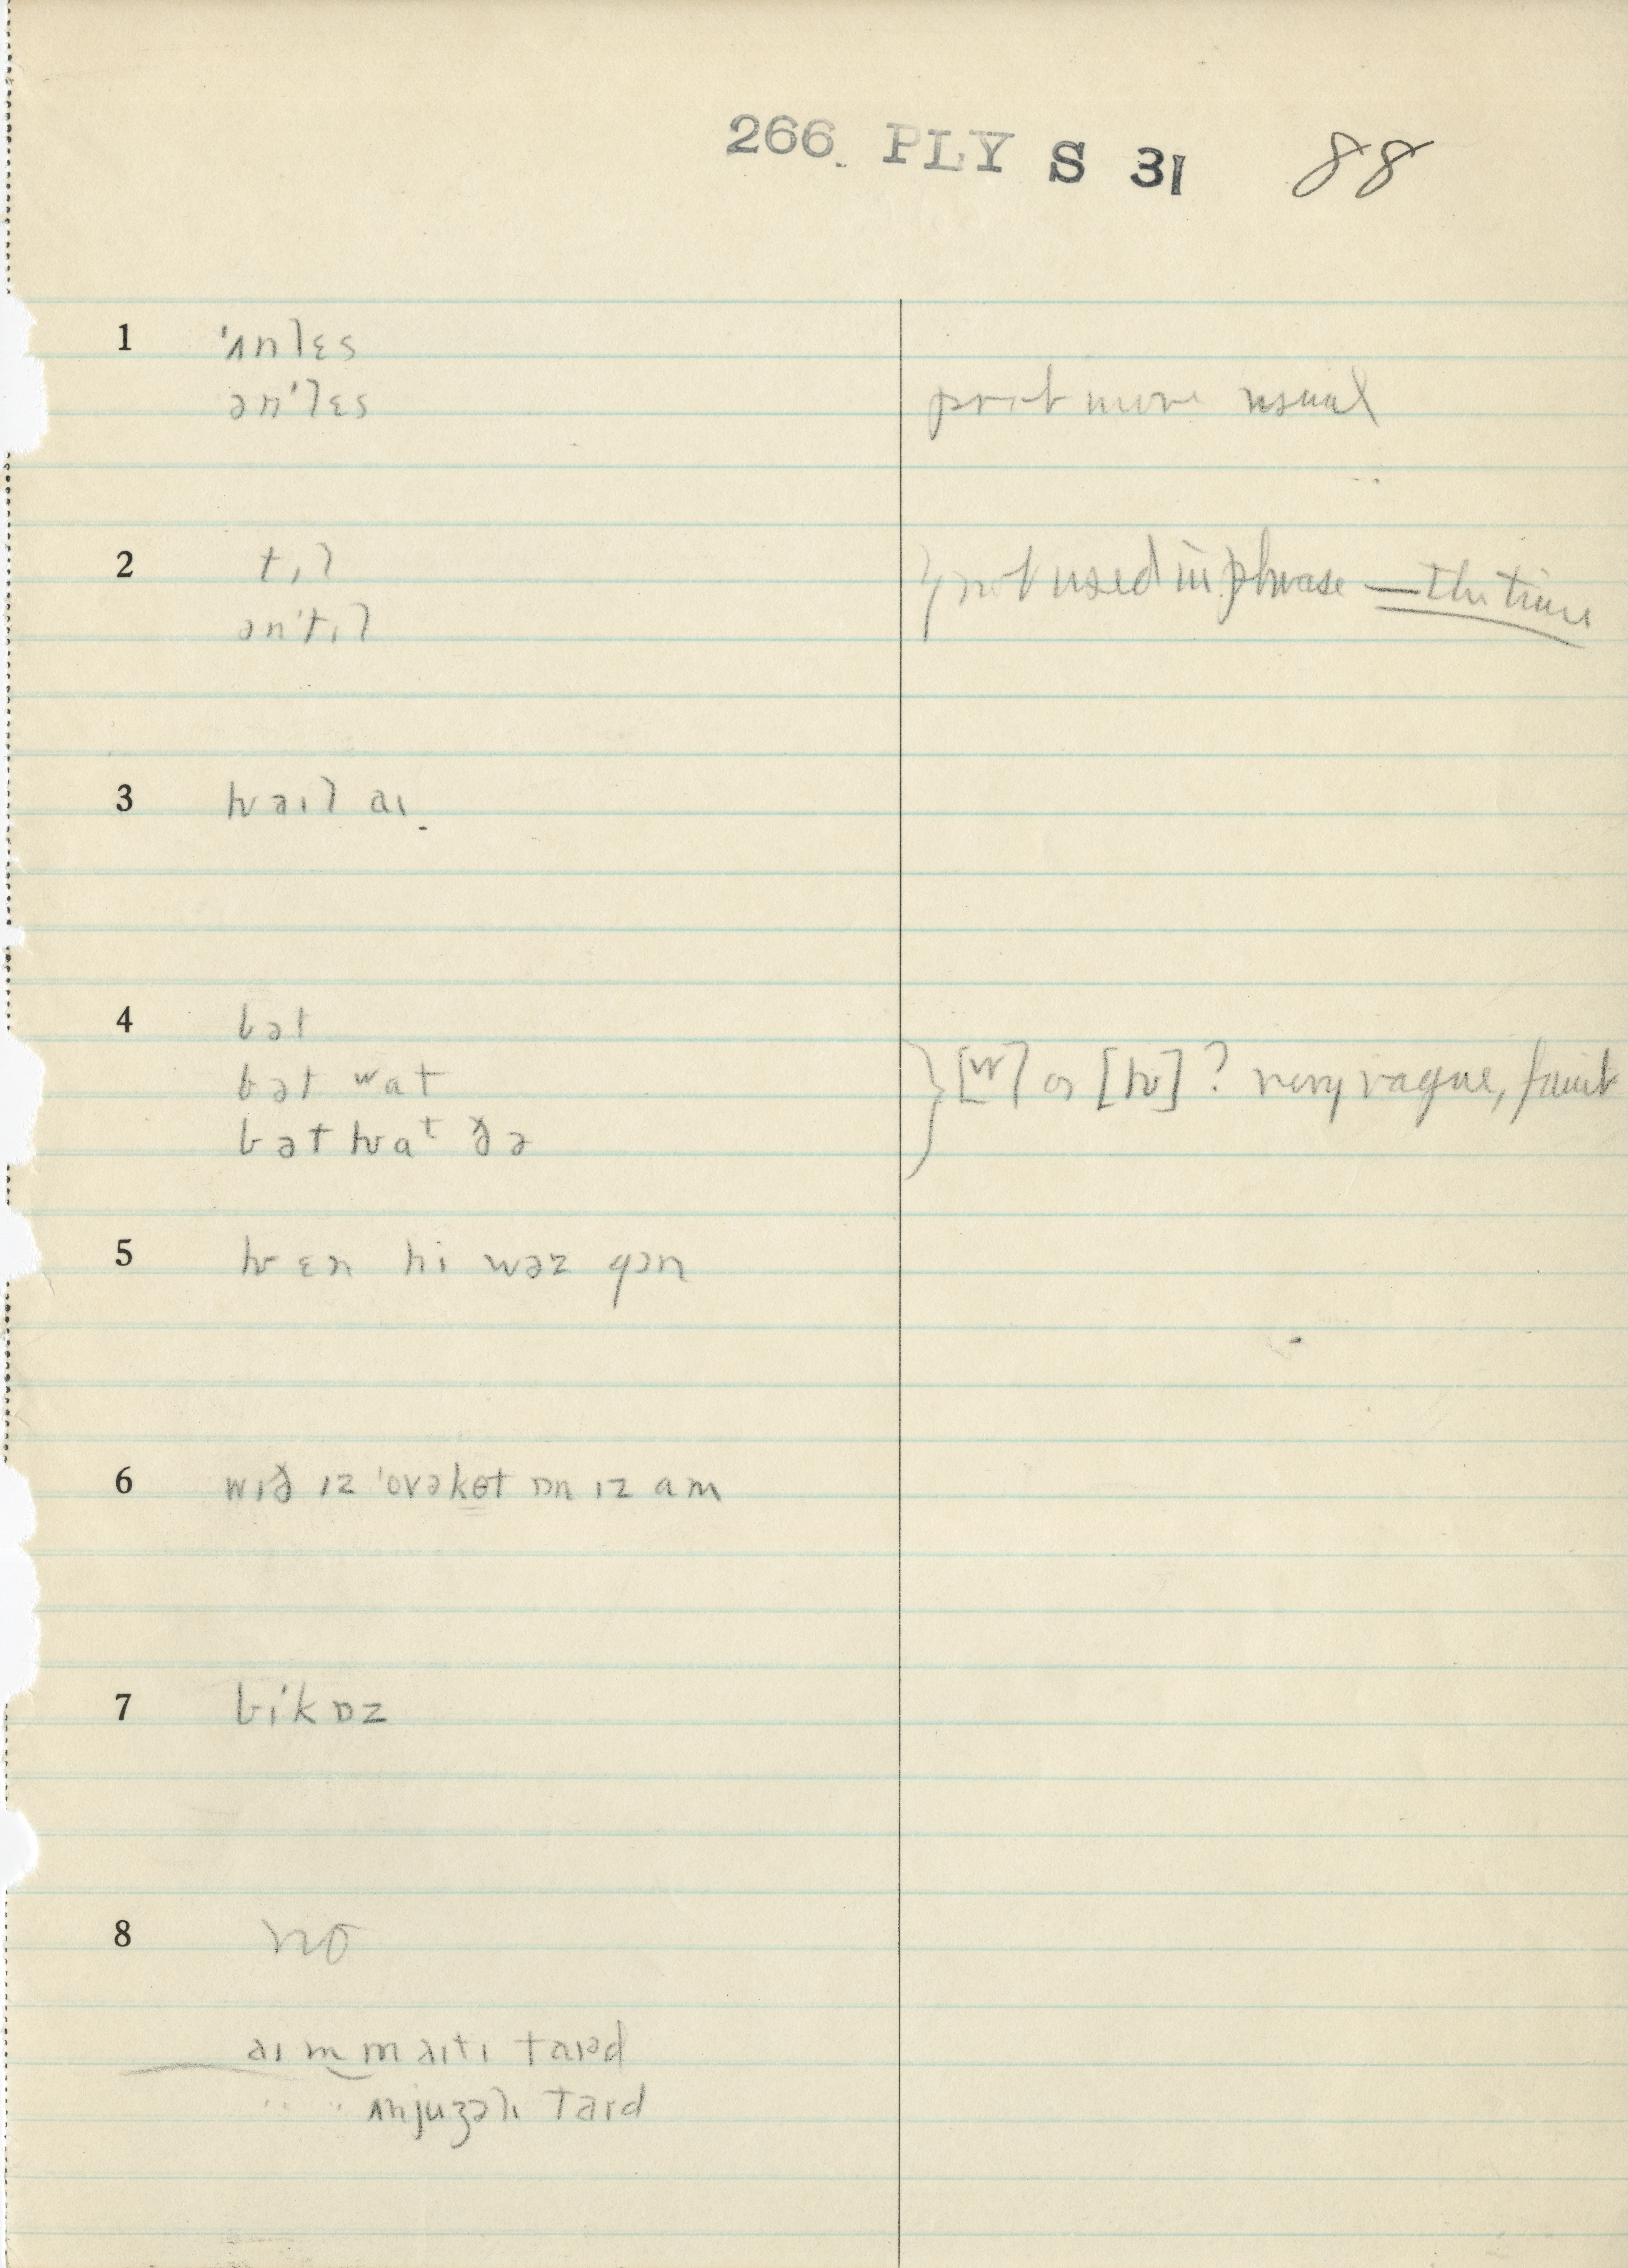 266 PLY S 31 88
1 ˈʌnlɛs
ənˈlɛs prob more usual
2 tɪl } not used in phrase — the time
ənˈtɪl
3 hwəɪl aɪ
4 bət
bət wat } [w] or [hw] ? very vague, faint
bət hwat ðə
5 hwɛn hi wəz gɔn
6 wɪð ɪz ˈovəkɵt ɒn ɪz am
7 biˈkɒz
8 no
aɪm məɪtɪ taɪəd
" " ʌnjuʒəlɪ taɪd